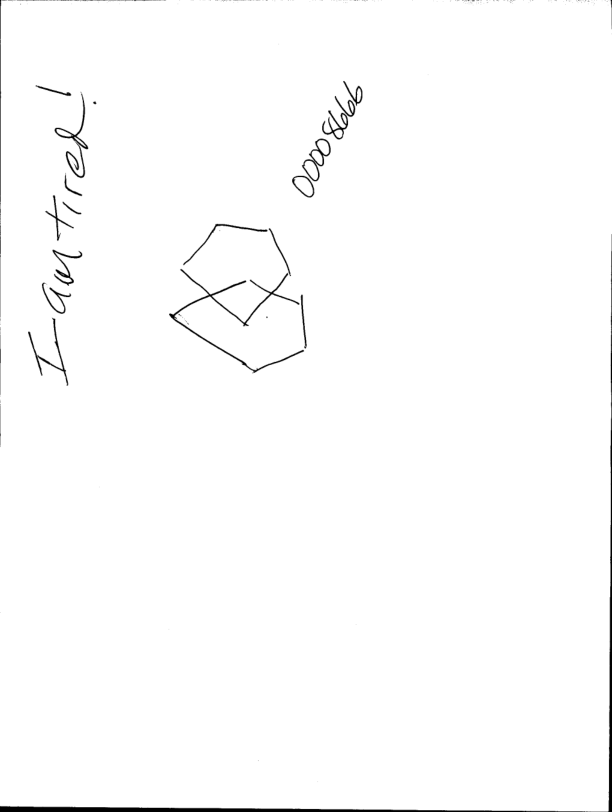 I am tired!
00008666